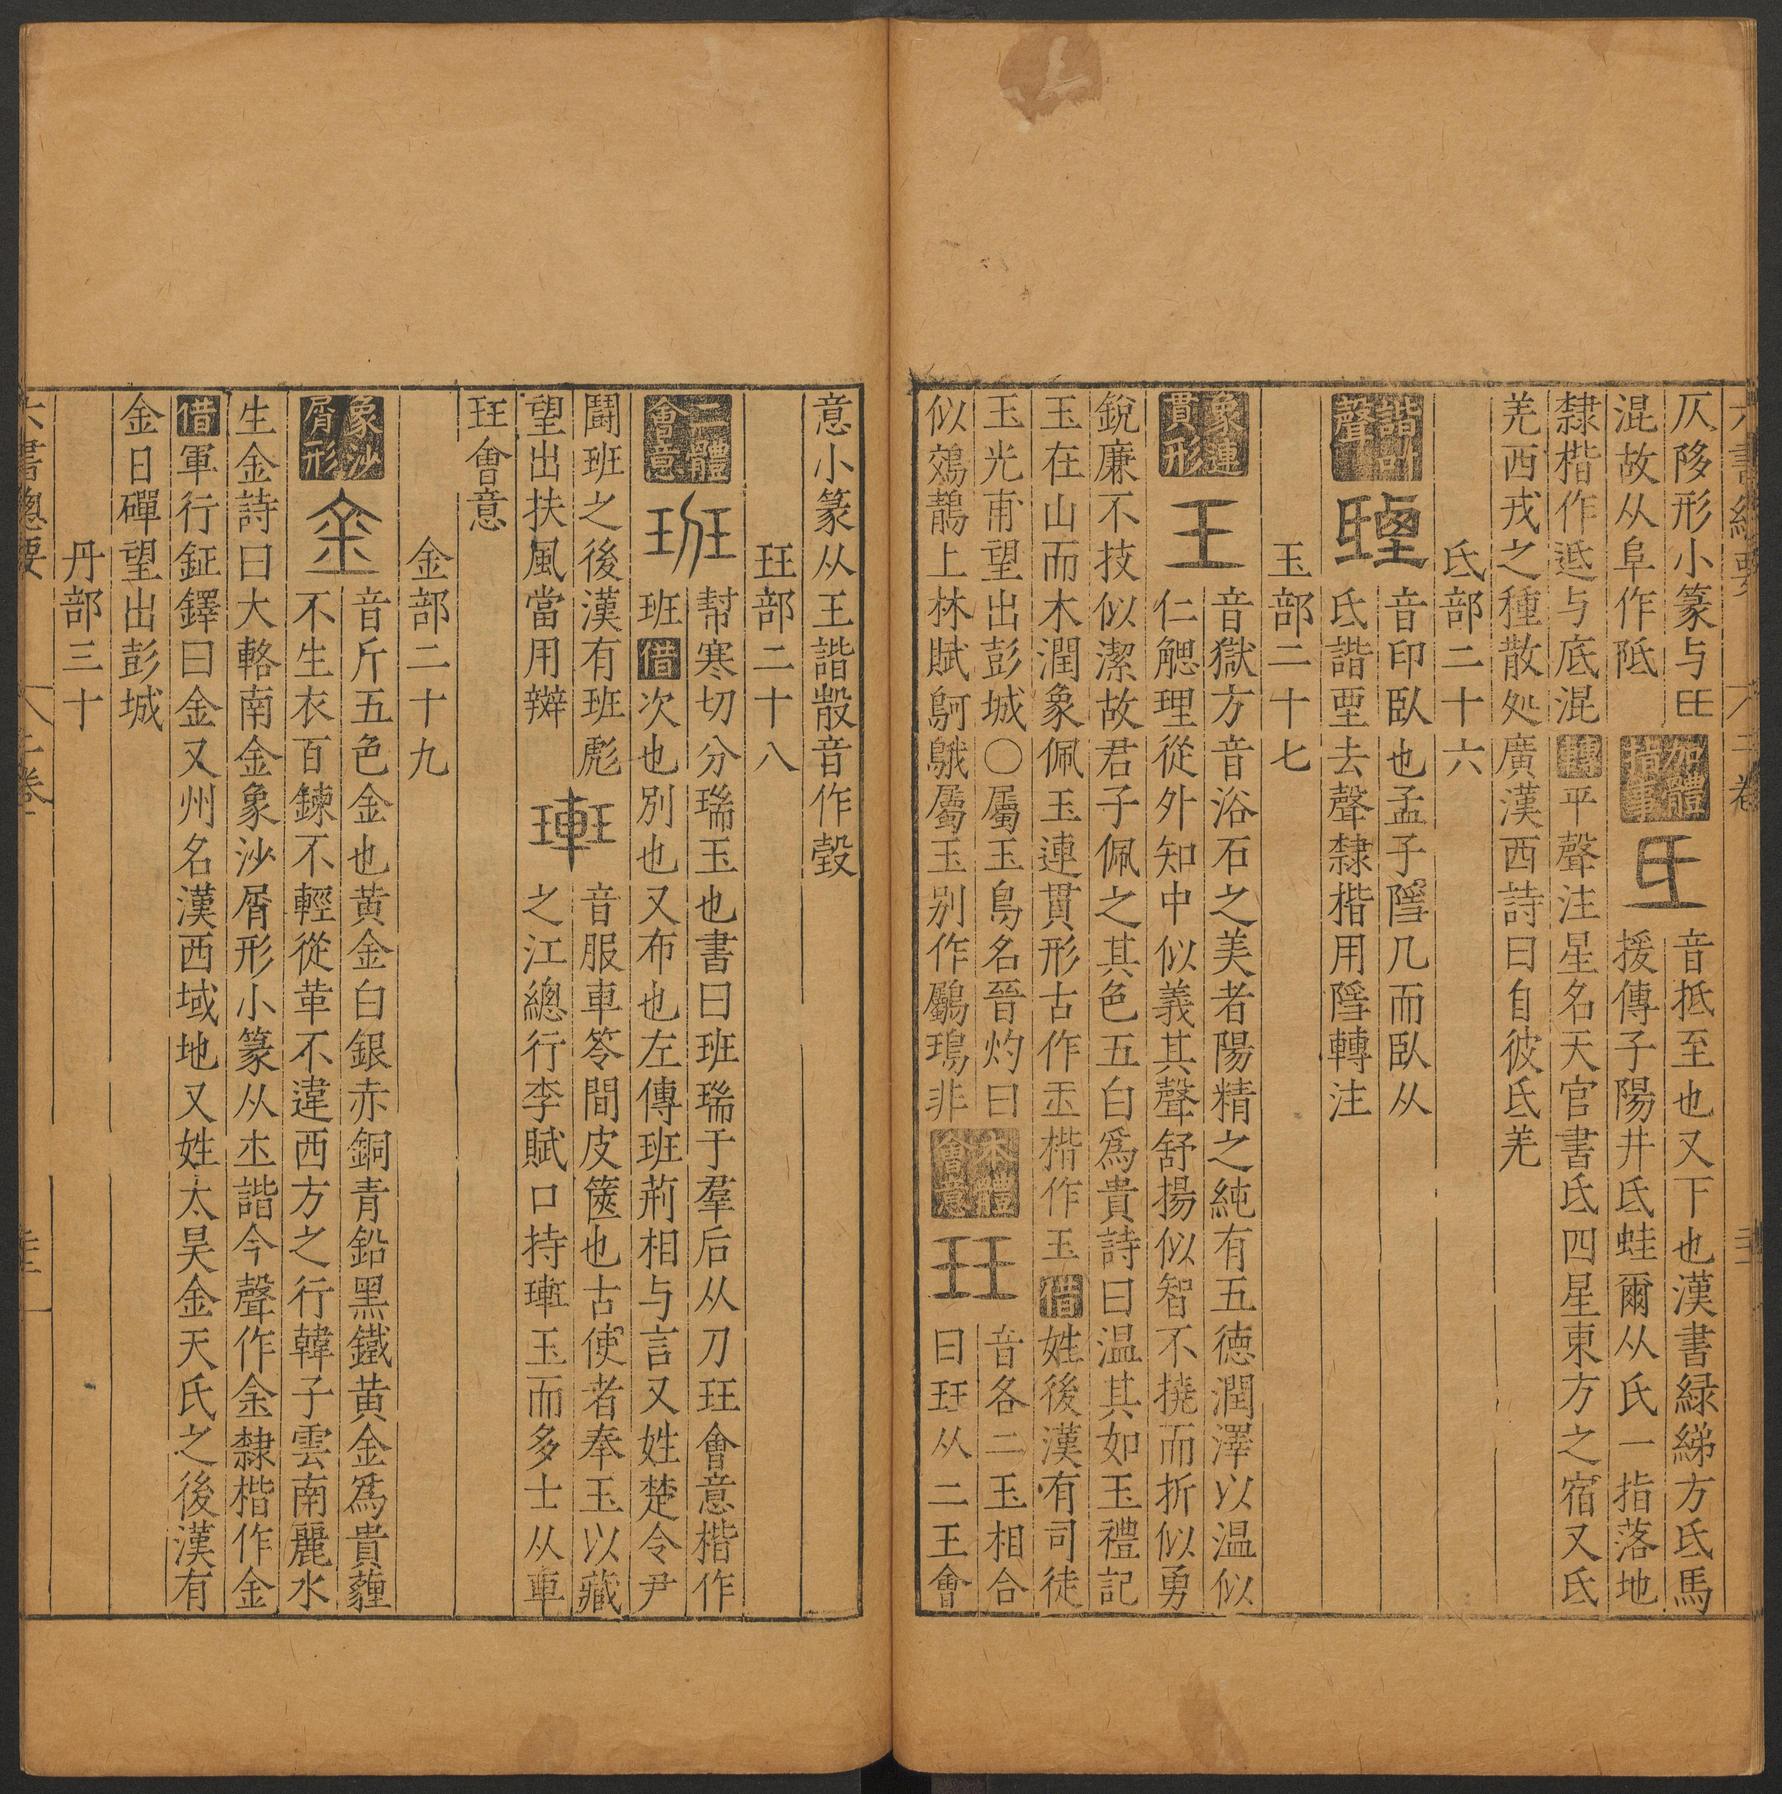 仄陊形小篆与𤣩加體指事氐音抵至也又下也漢書緑綈方氐馬
混故从阜作阺援傳子陽井氐蛙爾从氏一指落地
隸楷作逓与底混轉平聲注星名天官書氐四星東方之宿又氐
羌西戎之種散処廣漢西詩曰自彼氐羌
氐部二十六
諧附聲音印臥也孟子隱几而臥从
氐諧垔去聲隸楷用隱轉注
玉部二十七
象連貫形王音獄方音浴石之美者陽精之純有五德潤澤以温似
仁䚡理從外知中似義其聲舒揚似智不撓而折似勇
銳廉不技似潔故君子佩之其色五白爲貴詩曰温其如玉禮記
玉在山而木潤象佩玉連貫形古作玊楷作玉借姓後漢有司徒
玉光甫望出彭城〇屬玉鳥名晉灼曰本體會意玨音各二玉相合
似鵁鶄上林賦鴚鵝屬玉別作鸀鳿非曰玨从二王會
意小篆从王諧㱿音作瑴
玨部二十八
二體會意班幇寒切分瑞玉也書曰班瑞于羣后从刀玨會意楷作
班借次也別也又布也左傳班荊相与言又姓楚令尹
鬪班之後漢有班彪𤦲音服車笭間皮篋也古使者奉玉以藏
望出扶風當用辬之江總行李賦口持𤦲玉而多士从車
玨會意
金部二十九
象沙屑形金音斤五色金也黄金白銀赤銅青鉛黑鐵黄金爲貴薶
不生衣百鍊不輕從革不違西方之行韓子雲南麗水
生金詩曰大輅南金象沙屑形小篆从𡈼諧今聲作金隸楷作金
借軍行鉦鐸曰金又州名漢西域地又姓太昊金天氏之後漢有
金日磾望出彭城
丹部三十
六書總要